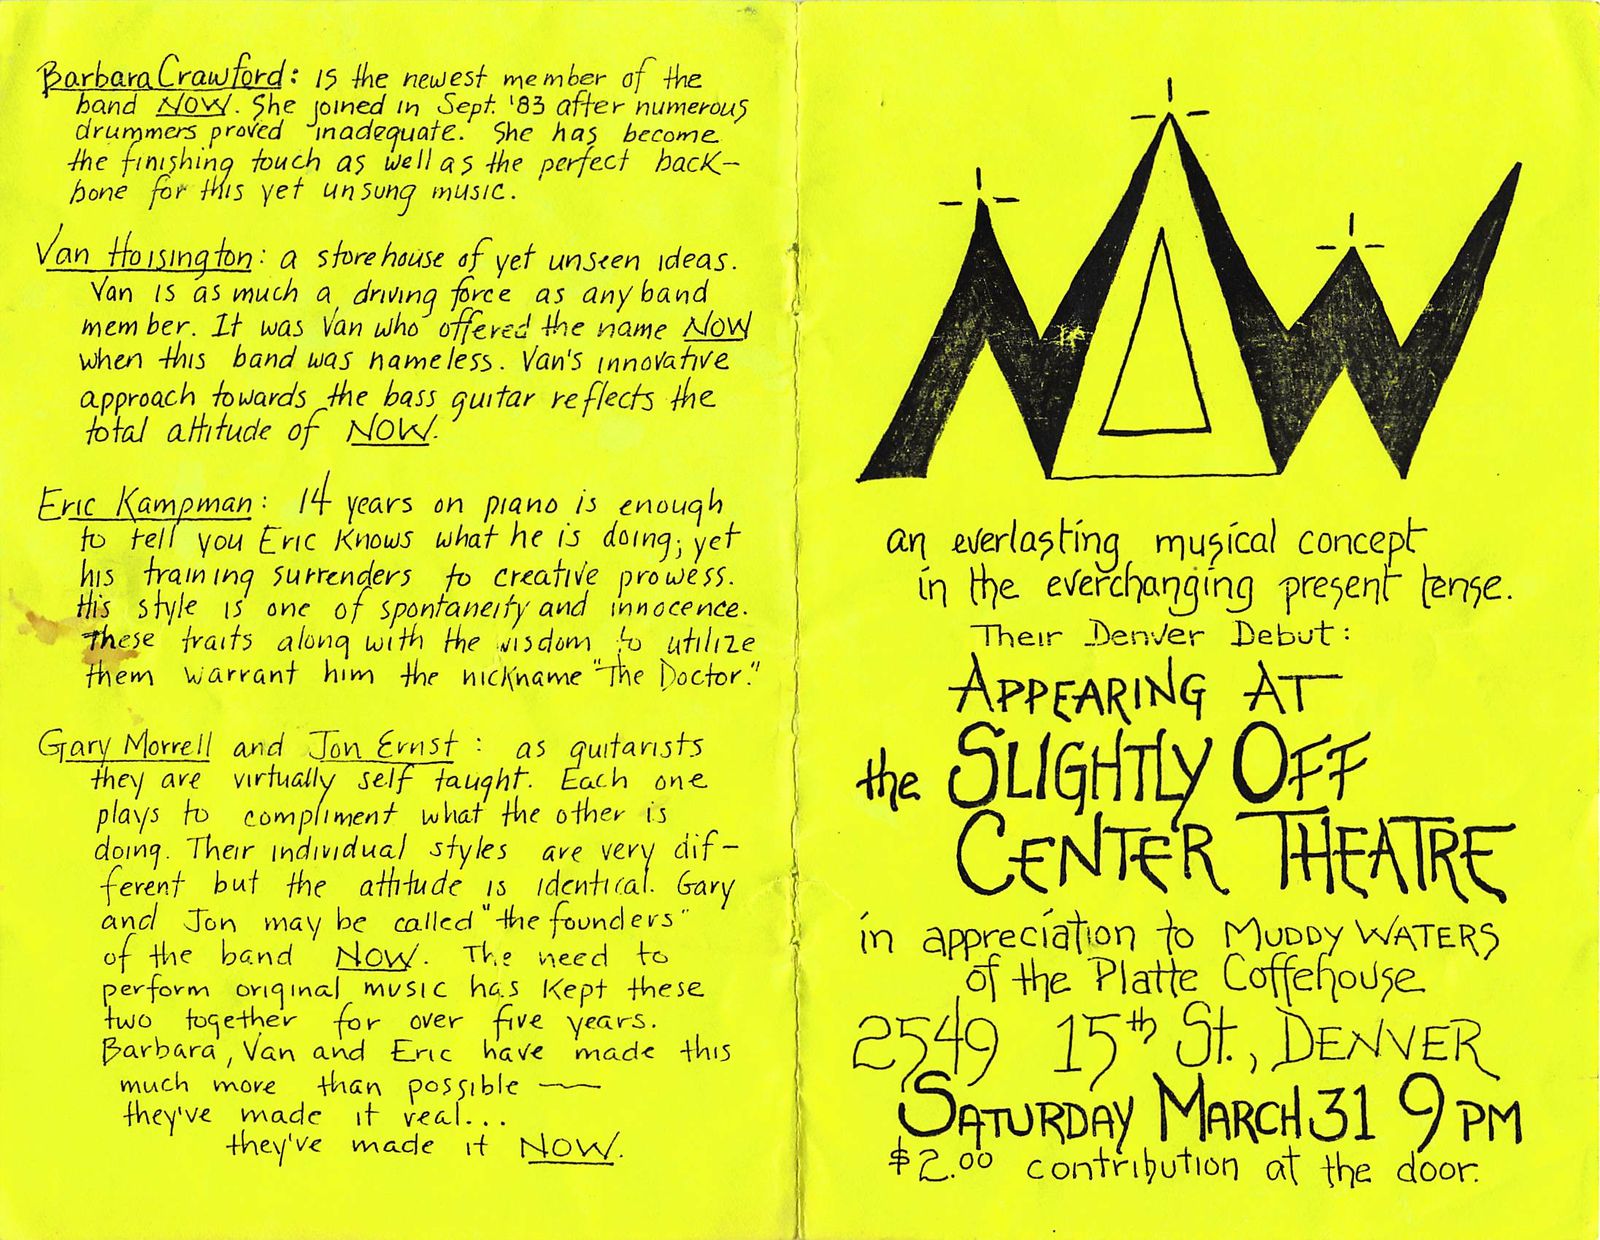 Barbara Crawford: is the newest member of the
band NOW. She joined in Sept. '83 after numerous
drummers proved inadequate. She has become
the finishing touch as well as the perfect back-
bone for this yet unsung music.
Van Hoisington: a storehouse of yet unseen ideas.
Van is as much a driving force as any band
member. It was Van who offered the name NOW
when this band was nameless. Van's innovative
approach towards the bass guitar reflects the
total attitude of NOW.
Eric Kampman: 14 years on piano is enough
to tell you Eric knows what he is doing; yet
his training surrenders to creative prowess.
His style is one of spontaneity and innocence.
These traits along with the wisdom to utilize
them warrant him the nickname "The Doctor."
Gary Morrell and Jon Ernst: as guitarists
they are virtually self taught. Each one
plays to compliment what the other is
doing. Their individual styles are very dif-
ferent but the attitude is identical. Gary
and Jon may be called "the founders"
of the band NOW. The need to
perform original music has kept these
two together for over five years.
Barbara, Van and Eric have made this
much more than possible —
they've made it real...
they've made it NOW.
NOW
an everlasting musical concept
in the everchanging present tense.
Their Denver Debut:
APPEARING AT
the SLIGHTLY OFF
CENTER THEATRE
in appreciation to MUDDY WATERS
of the Platte Coffehouse
2549 15th St., DENVER
SATURDAY MARCH 31 9 PM
$2.00 contribution at the door.